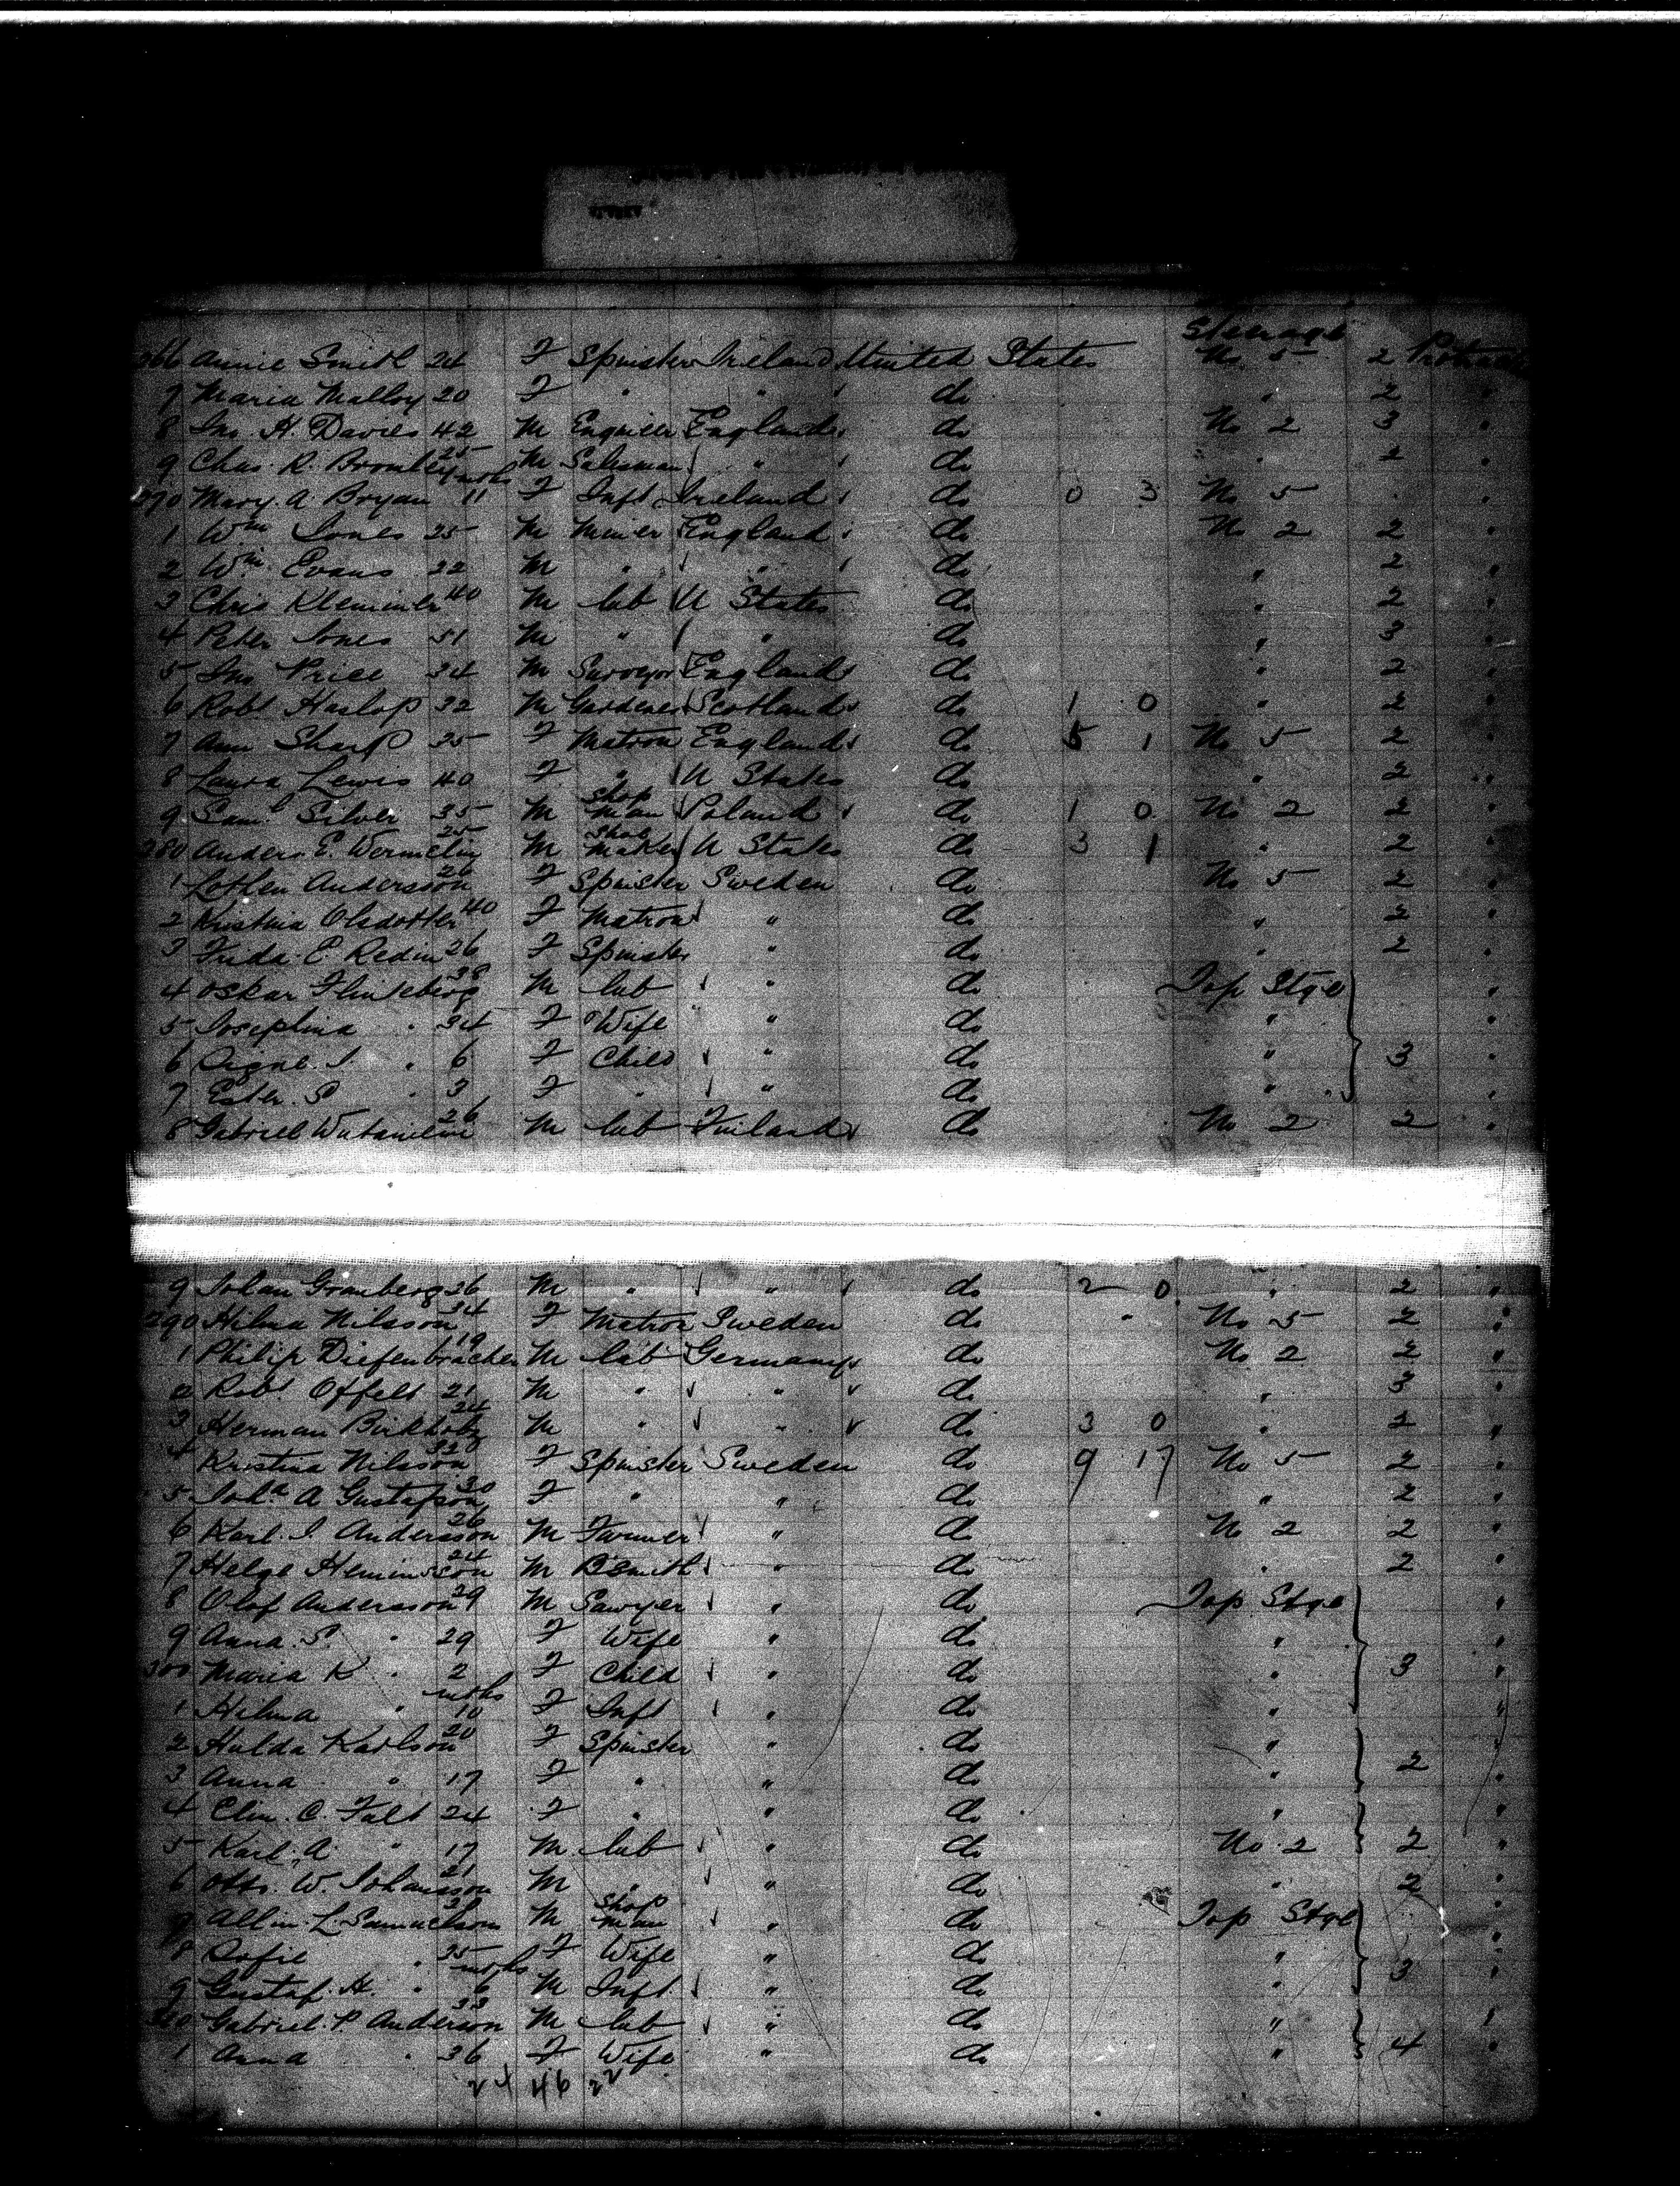 Steerage
266 Annie Smith 24 F Spinster Ireland United States No 5 2
7 Maria Malloy 20 F " " do " 2 "
8 Jno. H. Davies 42 M Engineer England do No 2 3 "
9 Chas. R. Bromley 25 M Salesman " do " 2 "
270 Mary. A. Bryan 11 mths F Inft Ireland do 0 3 No 5 "
1 Wm Jones 25 M Miner England do No 2 2 "
2 Wm Evans 22 M " " do " 2 "
3 Chris Klemmer 40 M lab U States do " 2 "
4 Peter Jones 51 M " " do " 3 "
5 Jno Price 34 M Surveyor England do " 2 "
6 Robt Harlop 32 M Gardener Scotland do 1 0 " 2 "
7 Ann Sharp 35 F Matron England do 5 1 No 5 2 "
8 Laura Lewis 40 F " U States do " 2 "
9 Saml Silver 35 M Shop man Poland do 1 0 No 2 2 "
280 Anders E. 25 M Shoe maker U States do 3 1 " 2 "
1 Andersson 26 F Spinster Sweden do No 5 2 "
2 Kristina Olsdotter 40 F Matron " do " 2 "
3 Frida E Redin 26 F Spinster " do " 2 "
4 Oskar 38 M lab " do Top Stge "
5 Josephina " 34 F Wife " do " "
6 Signe. J. " 6 F Child " do " 3 "
7 Ester. S " 3 F " " do " "
8 Gabriel 26 M lab Finland do No 2 2 "
9 Johan Granberg 26 M " " do 2 0 " 2 "
290 Hilma Nilsson 34 F Matron Sweden do No 5 2 "
1 Philip Diefenbracher 19 M lab Germany do No 2 2 "
2 Robt Offelt 21 M " " do " 3 "
3 Herman Birkholz 24 M " " do 3 0 " 2 "
4 Kristina Nilsson F Spinster Sweden do 9 17 No 5 2 "
5 Joha A Gustafson 30 F " " do " 2 "
6 Karl. J. Andersson 26 M Farmer " do No 2 2 "
7 Helge Heminsson 24 M BSmith " do " 2 "
8 Olof Andersson 29 M Sawyer " do Top Stge "
9 Anna. S. " 29 F Wife " do " "
300 Maria K " 2 F Child " do " 3 "
1 Hilma " 10 mths F Inft " do " "
2 Hulda Karlson 20 F Spinster " do " "
3 Anna " 17 F " " do " 2 "
4 Elin. C. Falt 24 F " " do " "
5 Karl. A. " 17 M lab " do No 2 2 "
6 Otto. W. Johansson 21 M " " do " 2 "
7 L. Samuelsson M Shop man " do Top Stge "
8 Sofie " 25 F Wife " do " "
9 Gustaf. H. " 6 mths M Inft " do " 3 "
310 Gabriel. P. Anderson 33 M lab " do " "
1 Anna " 36 F Wife " do " 4 "
46 22